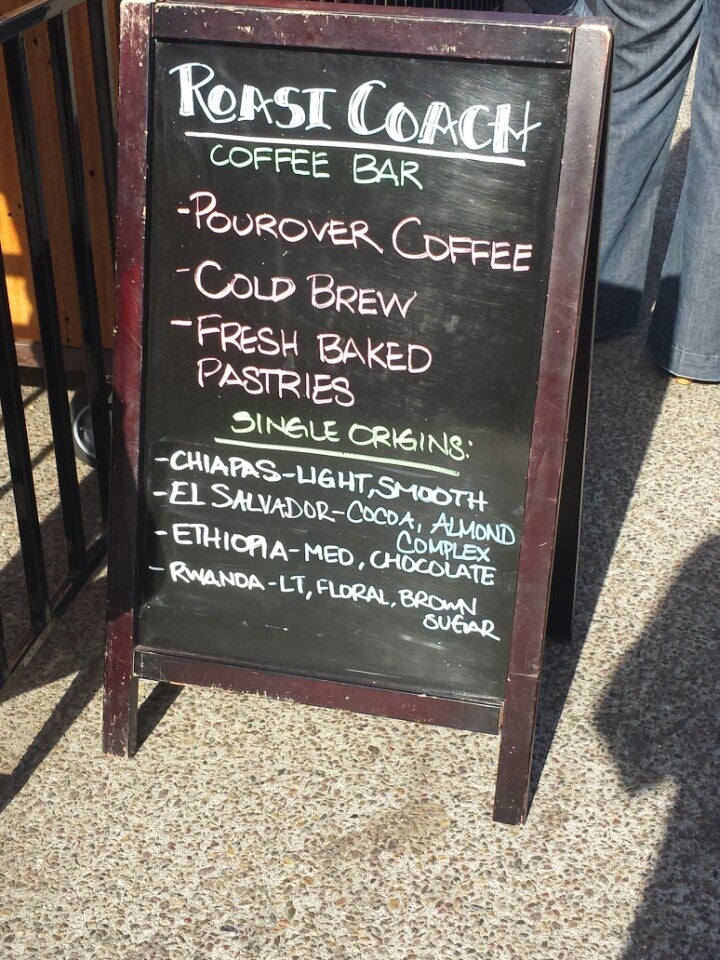 ROAST COACH
COFFEE BAR
-POUROVER COFFEE
-COLD BREW
-FRESH BAKED
PASTRIES
SINGLE ORIGINS:
-CHIAPAS-LIGHT, SMOOTH
-EL SALVADOR-COCOA, ALMOND
COMPLEX
-ETHIOPIA-MED, CHOCOLATE
-RWANDA-LT, FLORAL, BROWN
SUGAR